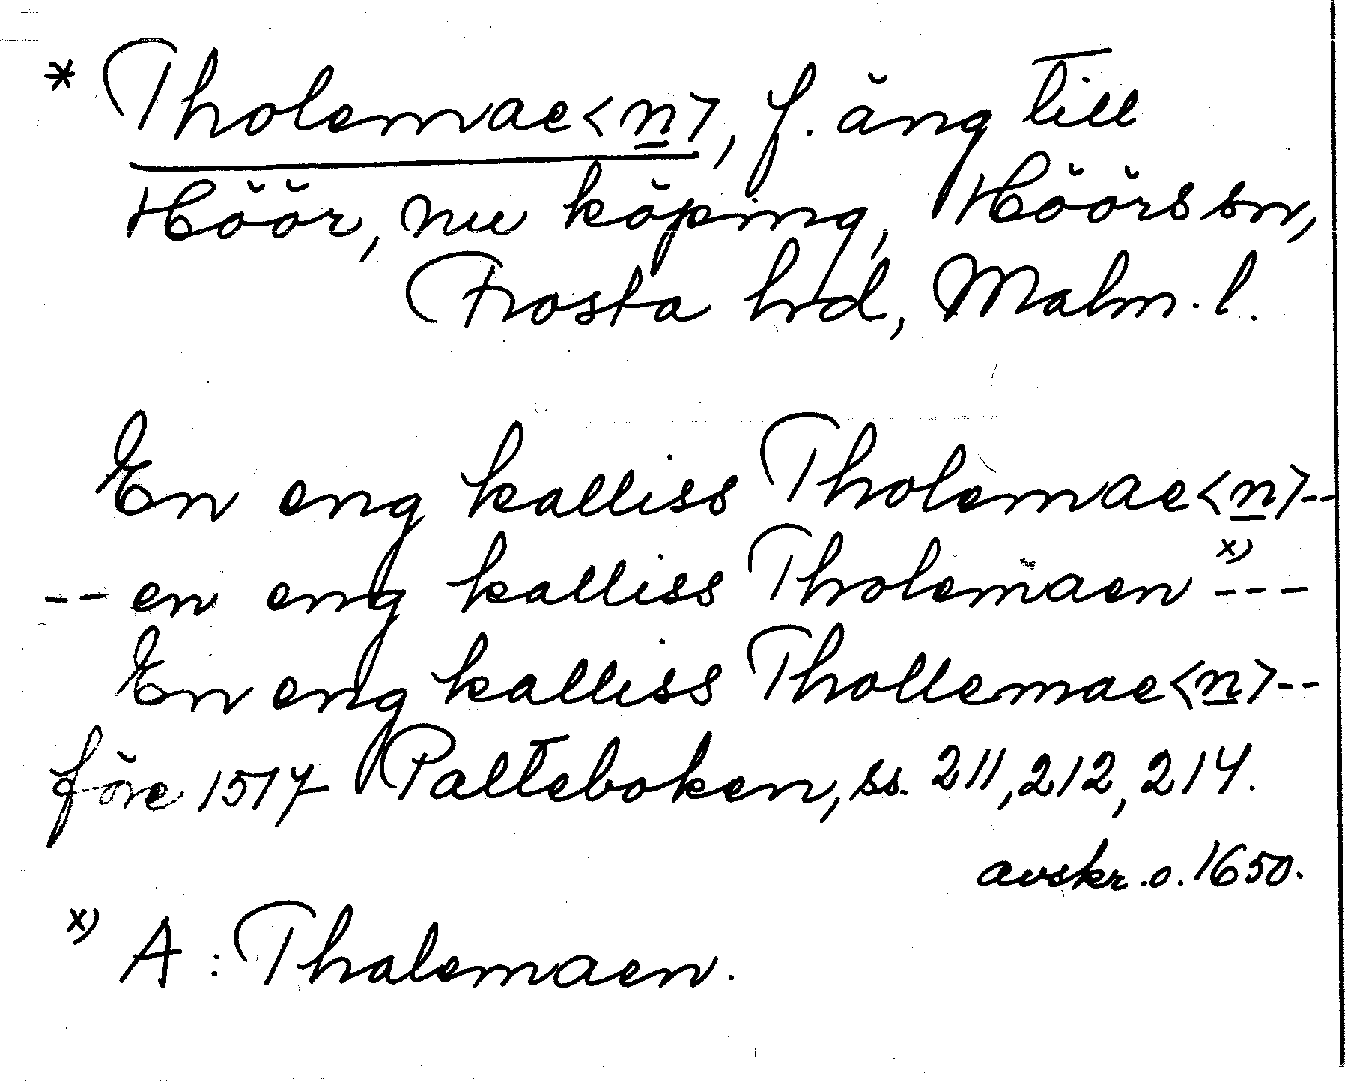 * Tholemae<n>, f. äng till
Höör, nu köping, Höörs sn,
Frosta hrd, Malm. l.
En eng kalliss Tholemae<n>--
-- en eng kalliss Tholemaen x) ---
En eng kalliss Thollemae<n>--
före 1517 Palteboken, ss. 211, 212, 214.
avskr. o. 1650.
x) A: Thalemaen.